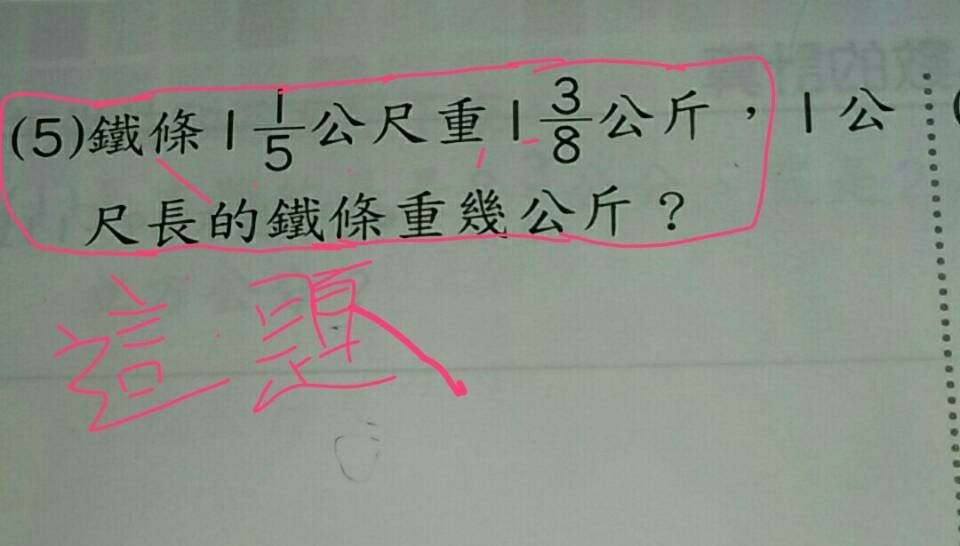 (5)鐵條1 1/5公尺重1 3/8公斤，1公
尺長的鐵條重幾公斤？
這題